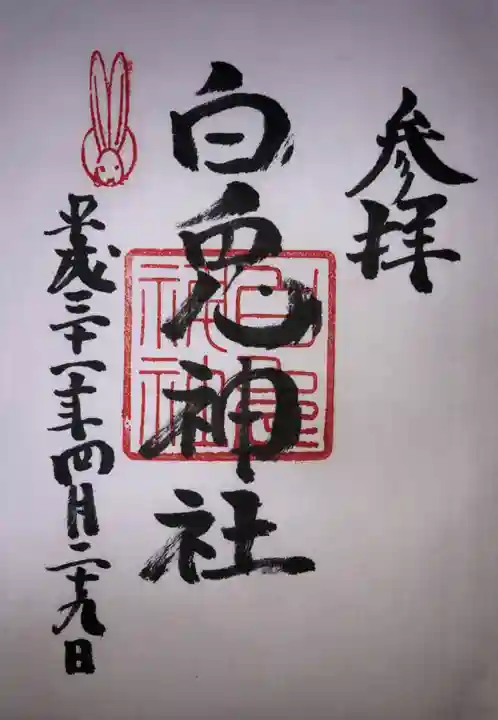 参拝
白兎神社
白兎神社
平成三十一年四月二十九日